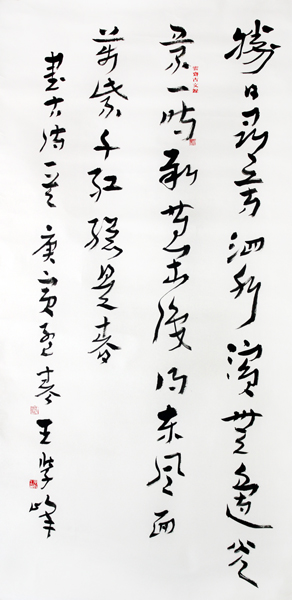 勝日尋芳泗水濱無邊光
景一時新等閒識得東風面
萬紫千紅總是春
書古詩一首庚寅孟春王學峰